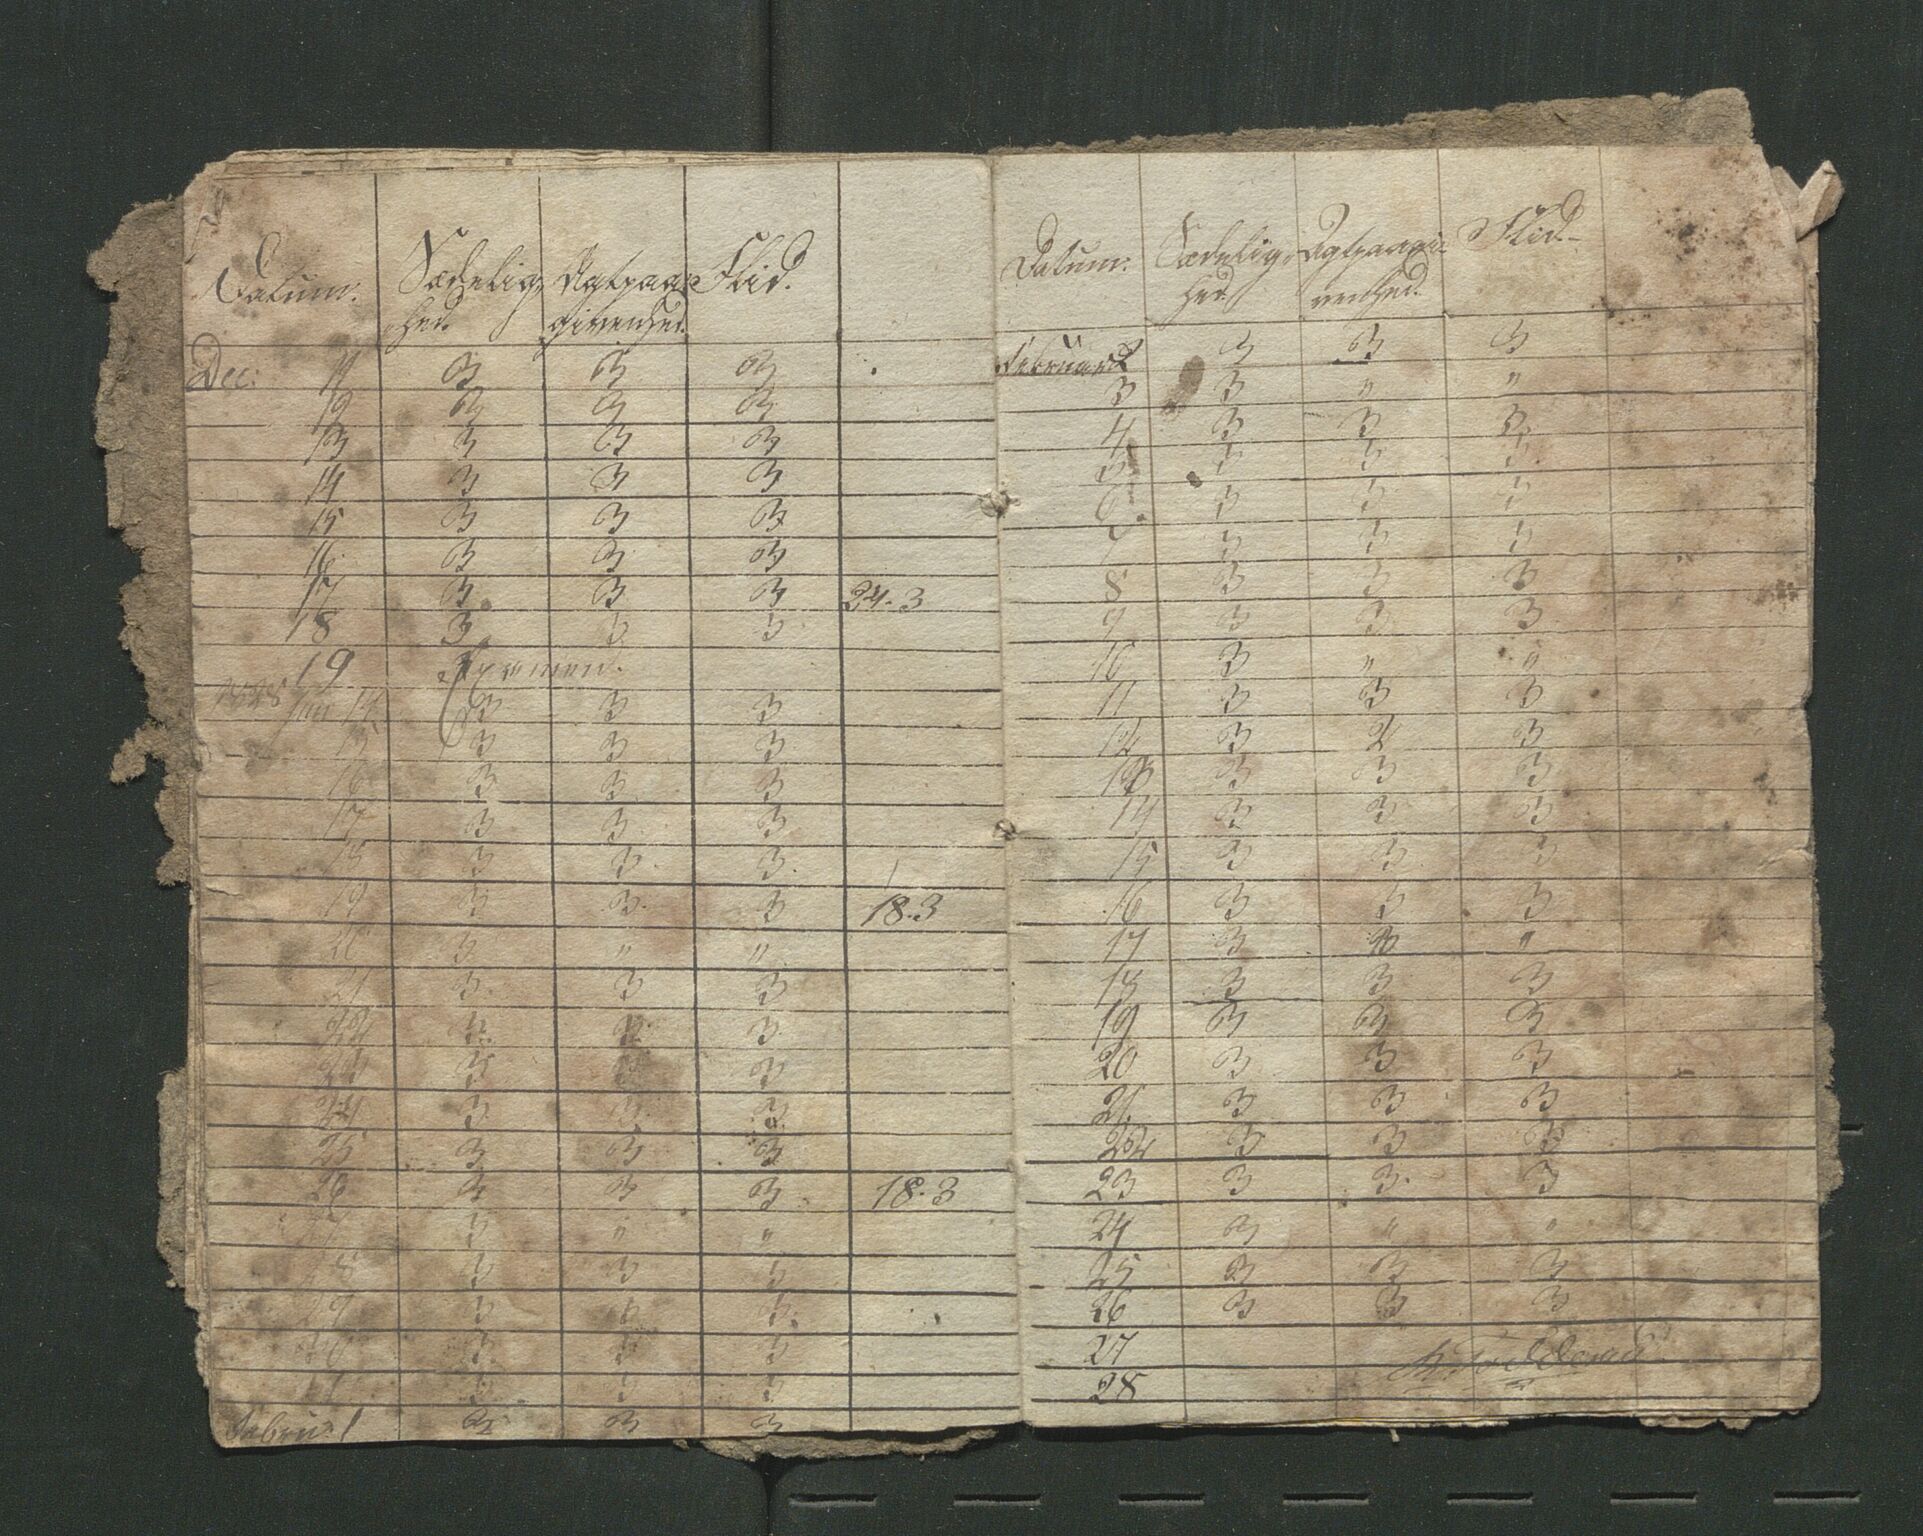 Datum. Sædelig- Agtpaa- Flid.
hed. givenhed.
Dec: 11 3 3 3
12 3 3 3
13 3 3 3
14 3 3 3
15 3 3 3
16 3 3 3
17 3 3 3 24.3
18 3 3 3
19 Examen.
1828 Jan 14 3 3 3
15 3 3 3
16 3 3 3
17 3 3 3
18 3 3 3
19 3 3 3 18.3
20 3 " "
21 3 3 3
22 3
23 3 3
24 3 3 3
25 3 3 3
26 3 3 3 18.3
27 3 " "
28 3 3 3
29 3 3 3
30 3 3 3
31 3 3 3
Febru: 1 3 3 3
Datum: Sædelig- Agtpaagi- Flid-
hed. venhed.
Februar 2 3 3 3
3 3 " "
4 3 3 3
5 3 3 3
6 3 3 3
7 3 3 3
8 3 3 3
9 3 3 3
10 3 " "
11 3 3 3
12 3 2 3
13 3 3 3
14 3 3 3
15 3 3 3
16 3 3 3
17 3 "
18 3 3 3
19 3 3 3
20 3 3 3
21 3 3 3
22 3 3 3
23 3 3 3
24 3 " "
25 3 3 3
26 3 3 3
27
28